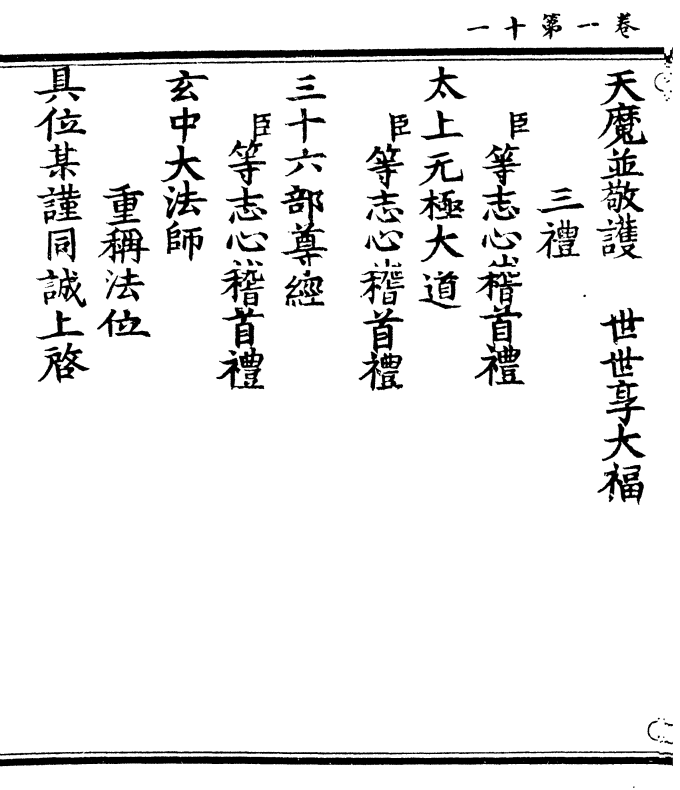 卷一第十一
天魔並敬護 世世享大福
三禮
臣等志心稽首禮
太上元極大道
臣等志心稽首禮
三十六部尊經
臣等志心稽首禮
玄中大法師
重稱法位
具位某謹同誠上啓